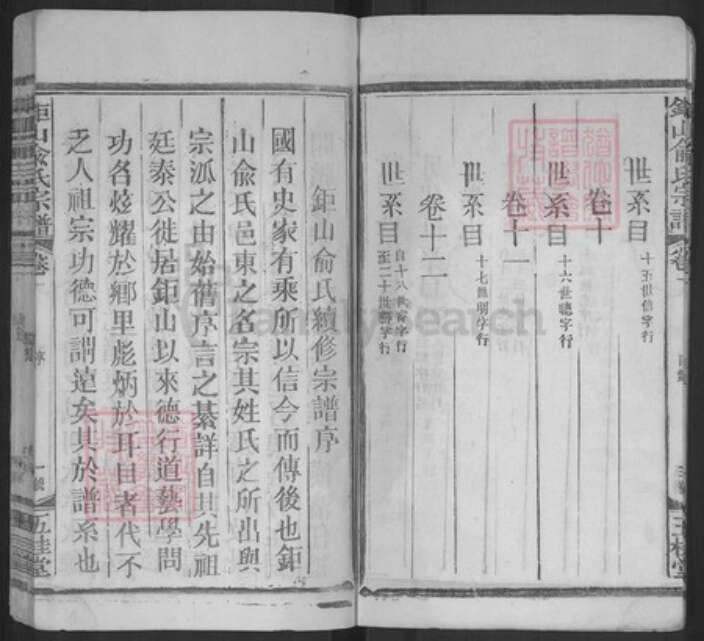 鉅山俞氏宗譜
卷一
五桂堂
世系目
十五世信字行
卷十
世系目
十六世聰字行
卷十一
世系目
十七世明字行
卷十二
世系目
自十八世睿字行
至二十世字行
鉅山俞氏續修宗譜序
國有史家有乘所以信今而傳後也鉅
山俞氏邑東之名宗其姓氏之所出與
宗派之由始舊序言之綦詳自其先祖
廷泰公徙居鉅山以來德行道藝學問
功名炫耀於鄉里彪炳於耳目者代不
乏人祖宗功德可謂遠矣其於譜系也
鉅山俞氏宗譜
卷一
序
五桂堂
FamilySearch